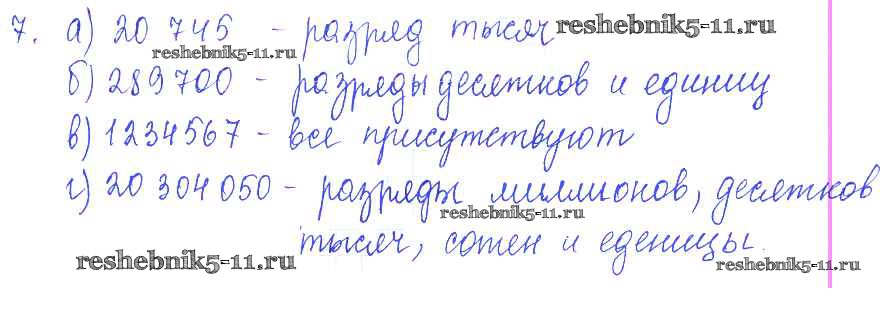 7. а) 20 745 - разряд тысяч reshebnik5-11.ru
reshebnik5-11.ru
б) 289700 - разряды десятков и единиц
в) 1234567 - все присутствуют
г) 20 304 050 - разряды миллионов, десятков
reshebnik5-11.ru
тысяч, сотен и еденицы.
reshebnik5-11.ru
reshebnik5-11.ru